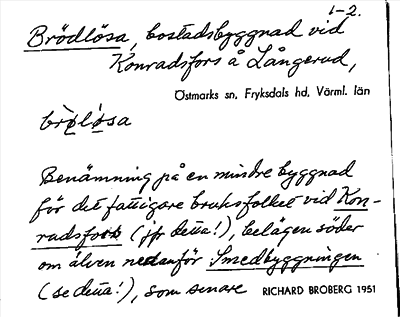 1-2.
Brödlösa, bostadsbyggnad vid
Konradsfors å Långerud,
Östmarks sn, Fryksdals hd, Värml. län
brø̀lø̀sa
Benämning på en mindre byggnad
för det fattigare bruksfolket vid Kon-
radsfors (jfr detta!), belägen söder
om älven nedanför Smedbyggningen
(se detta!), som senare
RICHARD BROBERG 1951